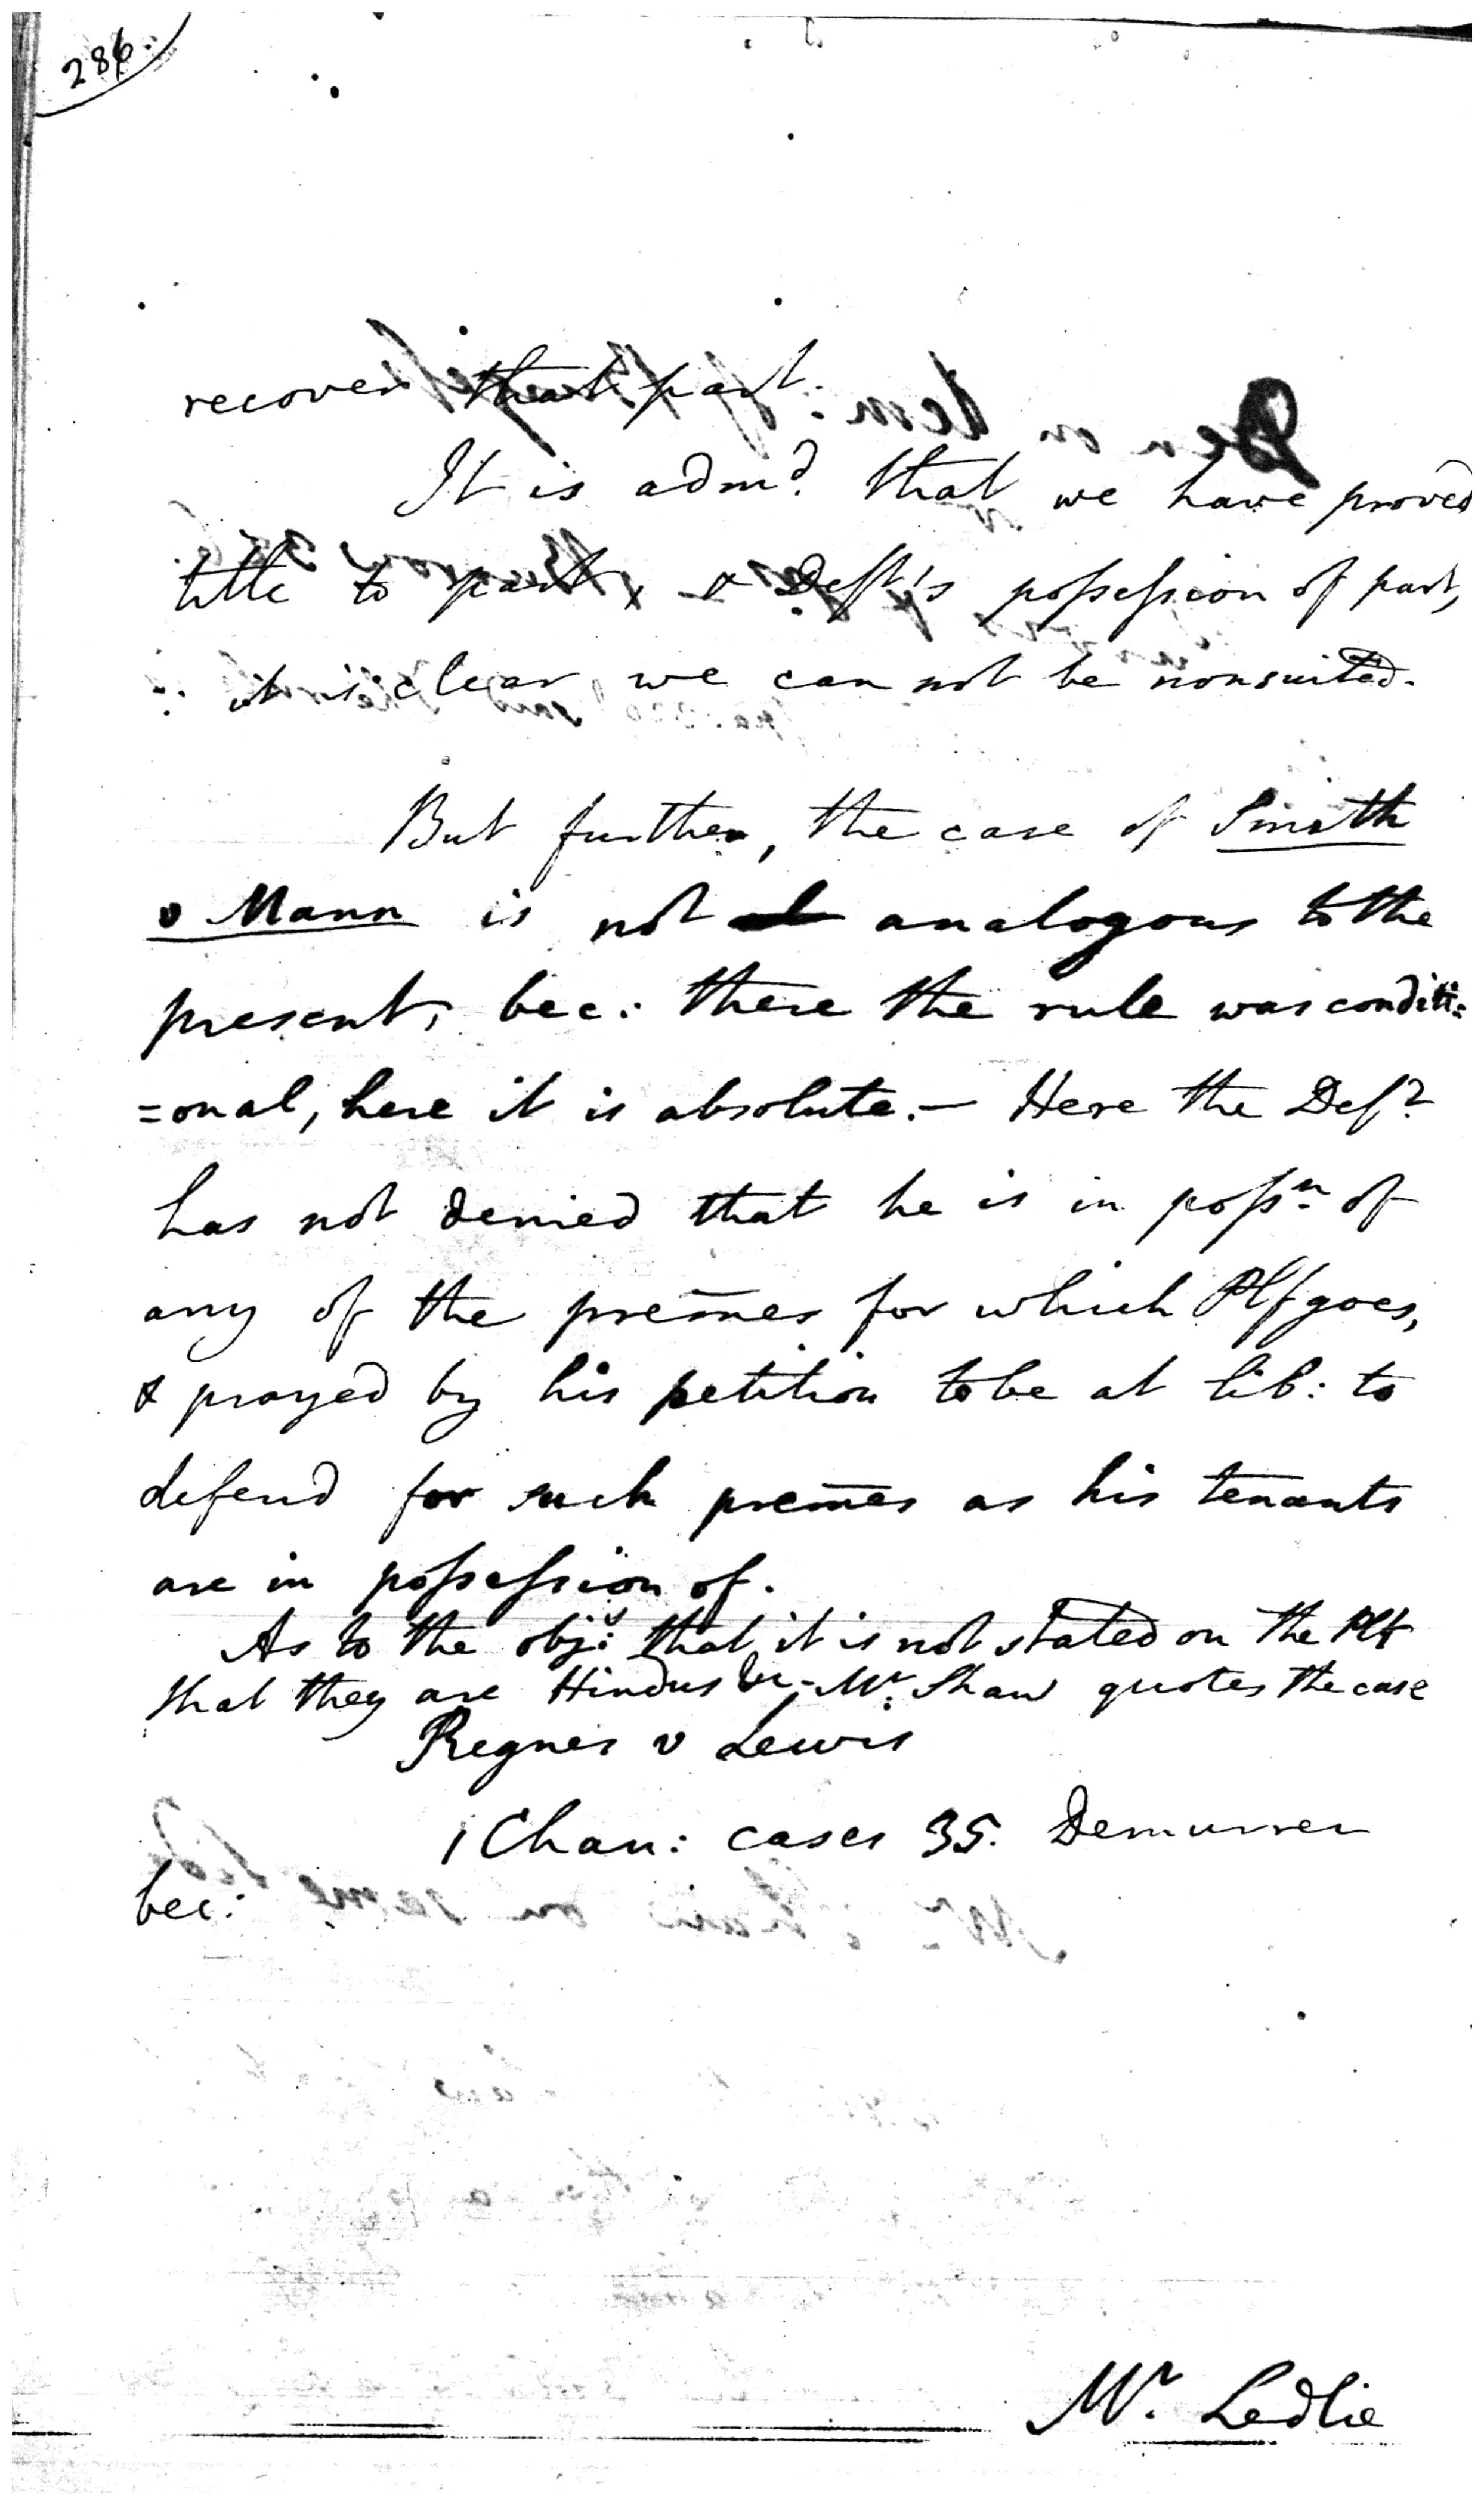 286
recover that part.
It is adm.d that we have proved
title to part, & Deft's possession of part,
∴ it is clear we can not be nonsuited.
But further, the case of Smith
v Mann is not analogous to the
present, bec: there the rule was conditi=
=onal, here it is absolute.— Here the Deft
has not denied that he is in possn of
any of the premes for which Plf goes,
& prayed by his petition to be at lib: to
defend for such premes as his tenants
are in possession of.
As to the obj:n that it is not stated on the Plt
that they are Hindus &c- Mr. Shaw quotes the case
Regnes v Lewis
1 Chan: cases 35. Demurrer
bec:
Mr. Ledlie